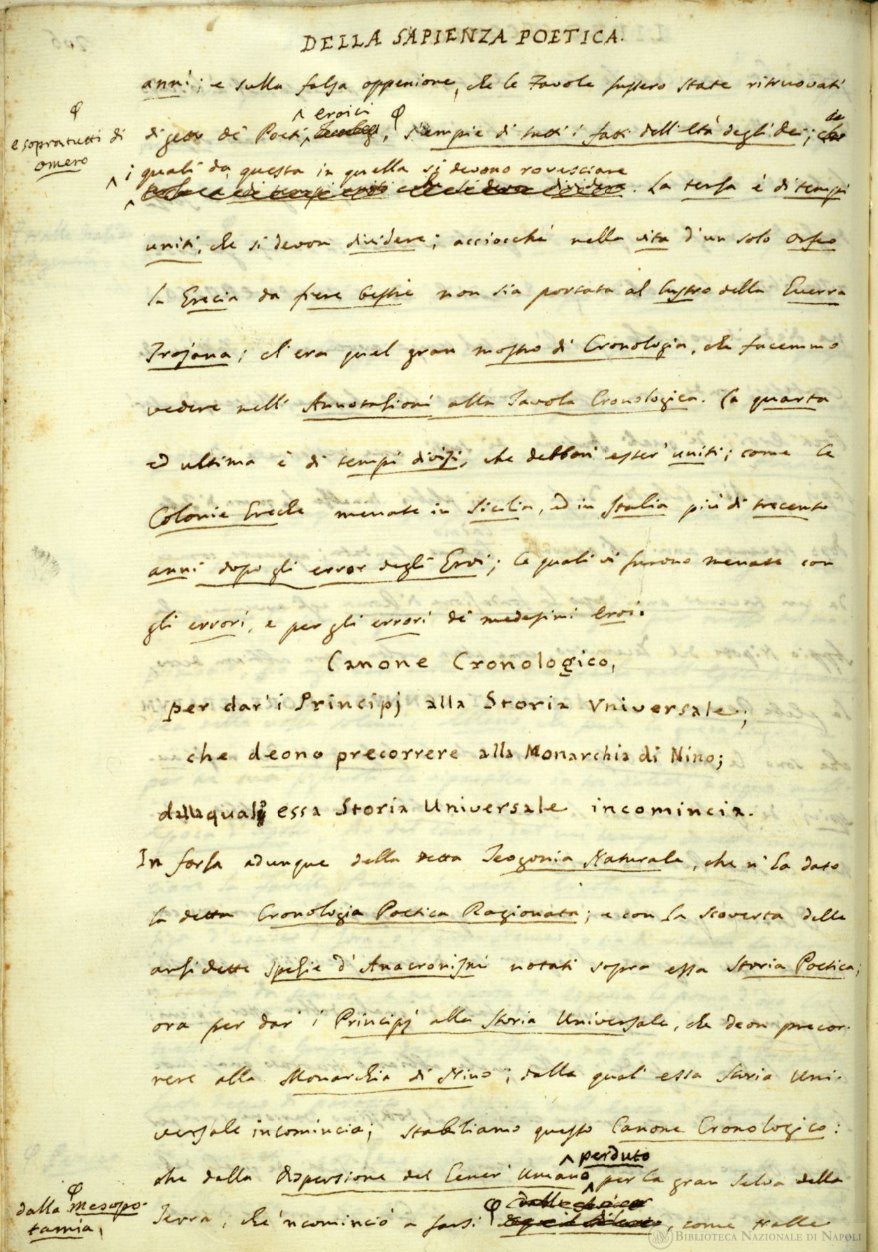 DELLA SAPIENZA POETICA.
anni; e sulla falsa oppenione, che le Favole fussero state ritruovati
φ
e sopratutti di
Omero
di getto de' Poeti eroici φ, s'empie di tutti i fatti dell'Età degli dei;
i quali da questa in quella si devono rovesciare
. La terza è di tempi
uniti, che si devon dividere; acciocchè nella vita d'un solo Orfeo
la Grecia da fiere bestie non sia portata al lustro della Guerra
Trojana; ch'era quel gran mostro di Cronologia, che facemmo
vedere nell'Annotazioni alla Tavola Cronologica. La quarta
ed ultima è di tempi divisi, che debbon esser' uniti; come le
Colonie Greche menate in Sicilia, ed in Italia più di trecento
anni dopo gli error degli Eroi; le quali vi furono menate con
gli errori, e per gli errori de' medesimi Eroi.
Canone Cronologico,
per dar' i Principj alla Storia Vniversale;
che deono precorrere alla Monarchia di Nino;
dalla quale essa Storia Universale incomincia.
In forza adunque della detta Teogonia Naturale, che n'ha dato
la detta Cronologia Poetica Ragionata; e con la scoverta delle
anzidette spezie d'Anacronismi notati sopra essa Storia Poetica;
ora per dar' i Principj alla Storia Universale, che deon precor-
rere alla Monarchia di Nino; dalla qual' essa Storia Uni-
versale incomincia; stabiliamo questo Canone Cronologico:
che dalla dispersione del Gener' Umano perduto per la gran Selva della
φ
dalla Mesopo-
tamia,
Terra, che 'ncominciò a farsi φ, come tralle
BIBLIOTECA NAZIONALE DI NAPOLI